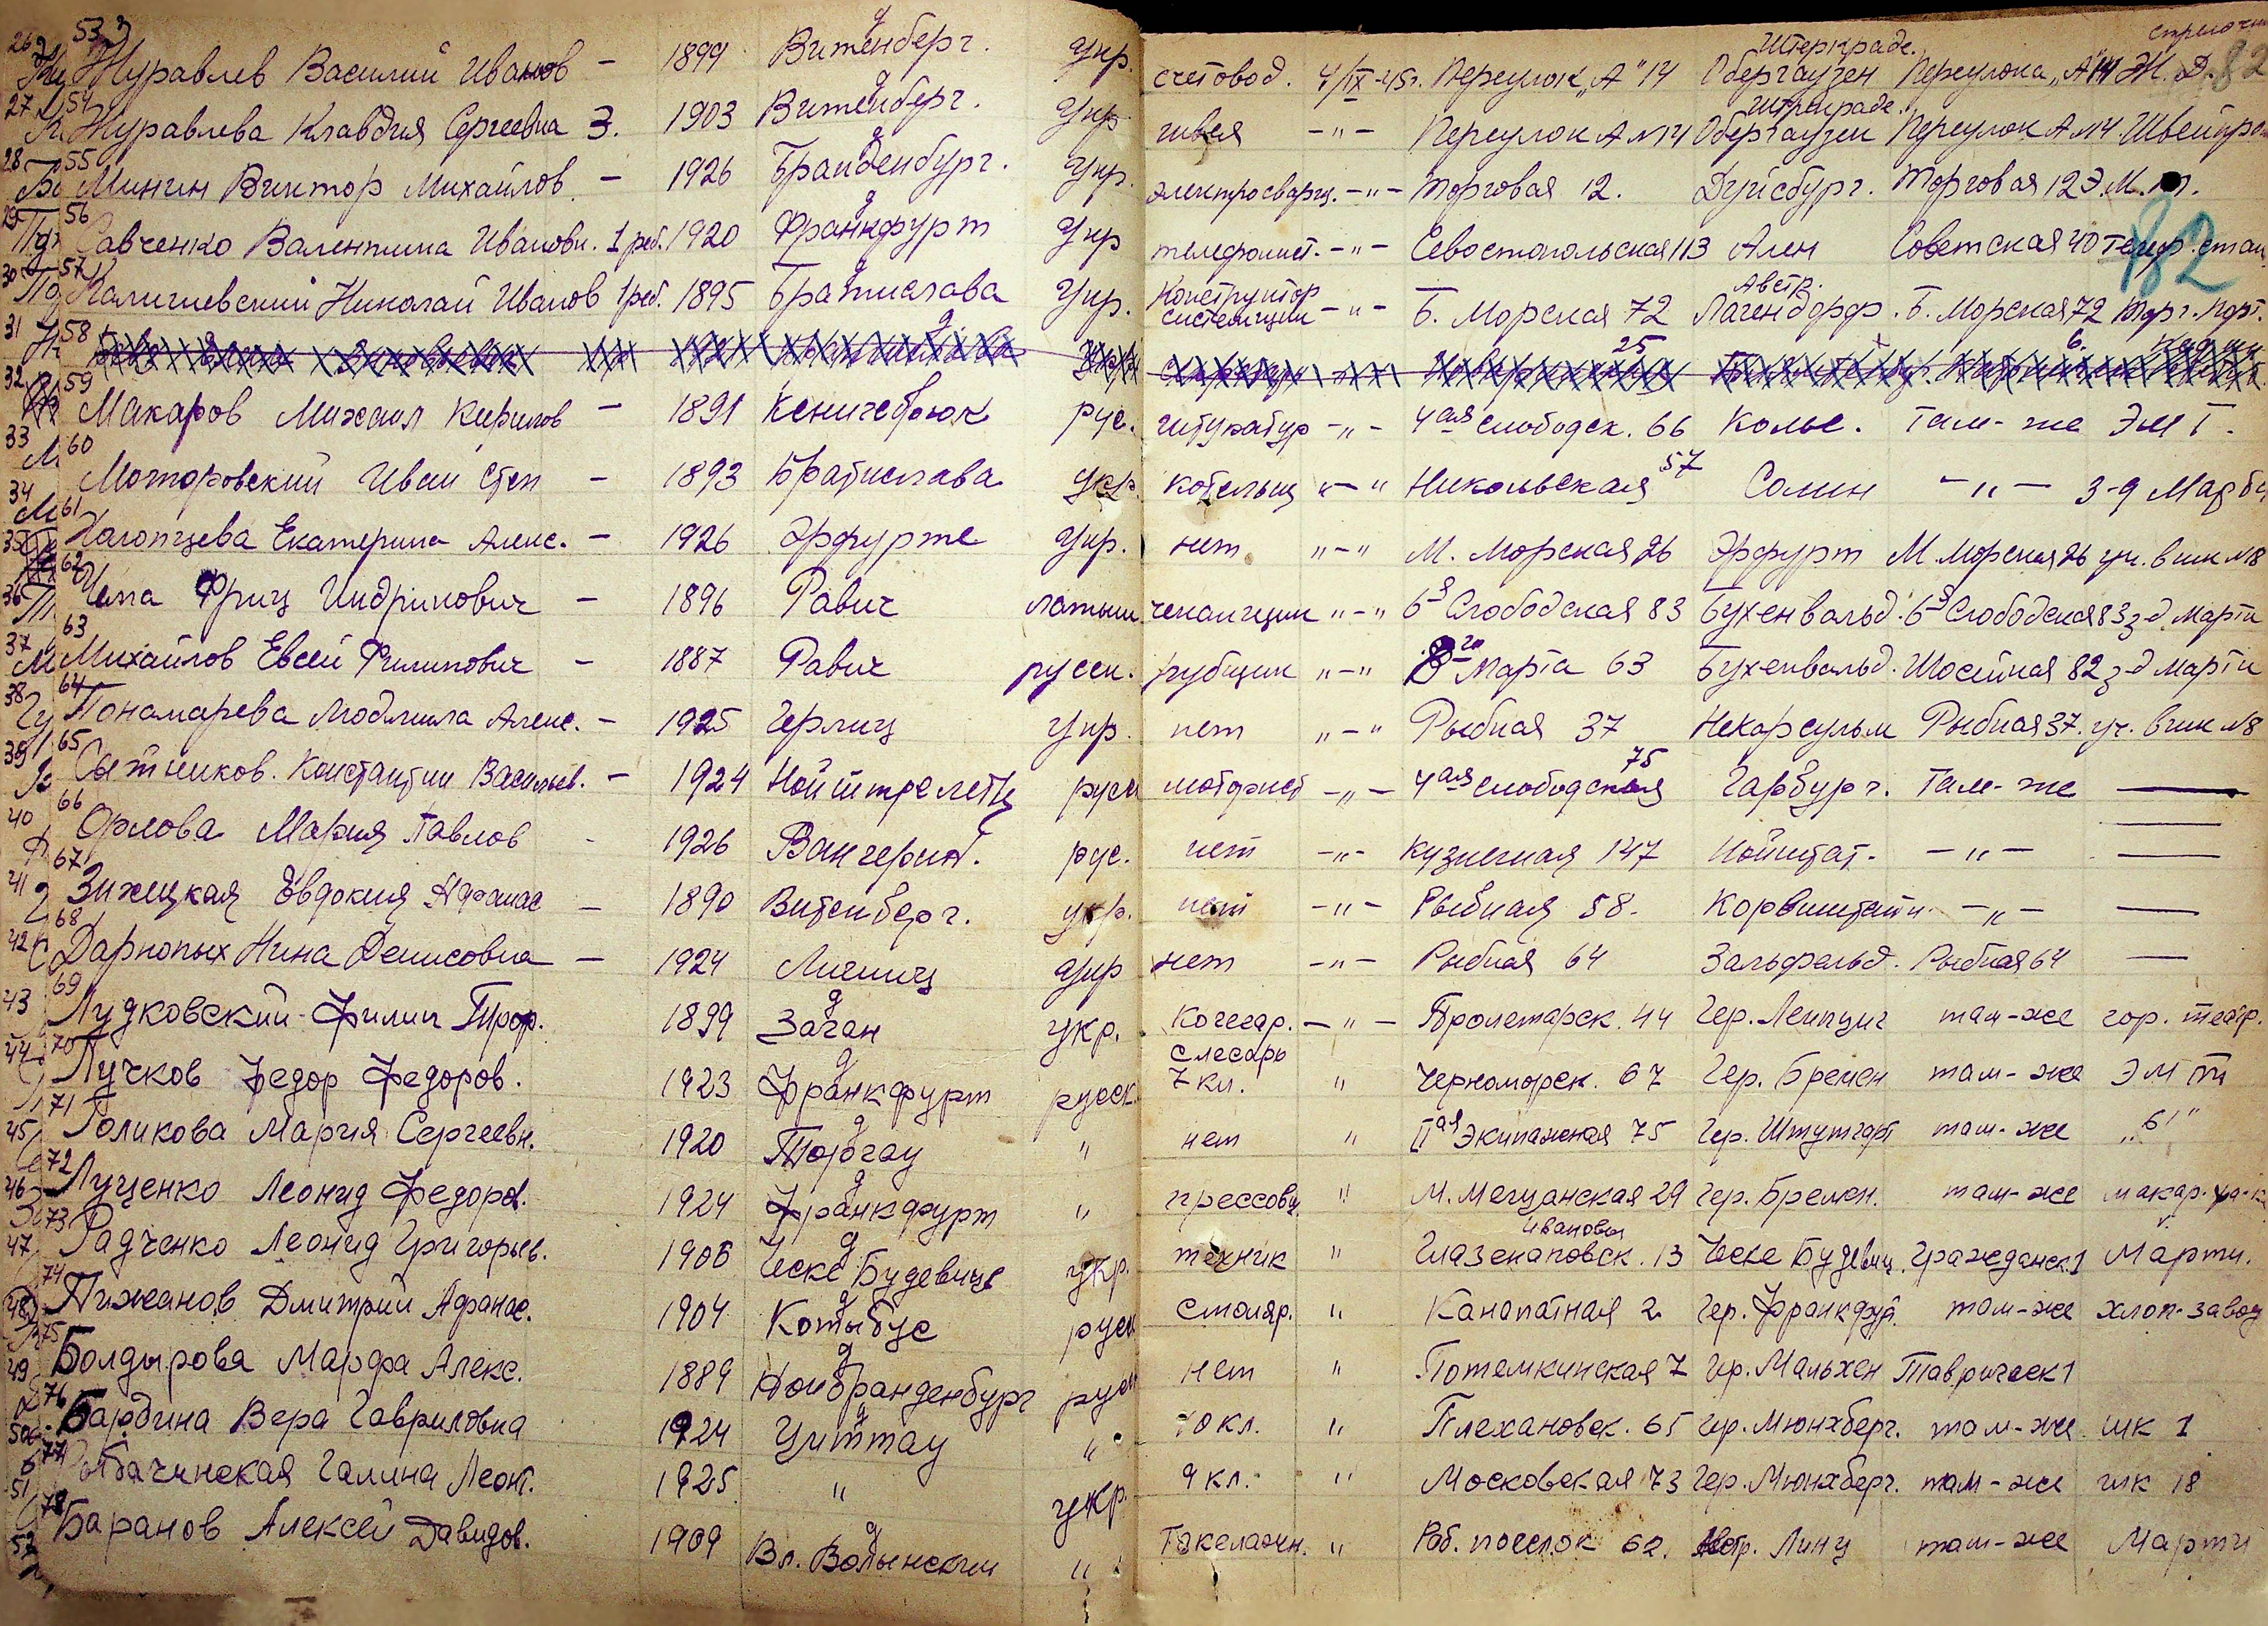 53 Журавлев Василий Иванов – 1899 Витенберг. Укр. счетовод. 4/IX-45г. Переулок „А" 14 Штеркраде. Обергаузен Переулок „А" 14 Ж.Д.
54 Журавлева Клавдия Сергеевна 3. 1903 Витенберг. Укр. швея –"– Переулок А №14 Штеркраде. Обергаузен Переулок А №14 Швейпром
55 Минин Виктор Михайлов – 1926 Бранденбург. Укр. электросварщ. –"– Торговая 12. Дуйсбург. Торговая 12 Э.М.Т.
56 Савченко Валентина Ивановн. 1 реб. 1920 Франкфурт Укр телефонист. –"– Севостопольская 113 Ален Советская 40 телеф. стан
82
57 Калишевский Николай Иванов 1 реб. 1895 Братислава Укр. Конструктор –"– Б. Морская 72 Австр. Лагендорф. Б. Морская 72 Торг. порт.
58
59 Макаров Михаил Кирилов – 1891 Кенигсбрюк рус. штукатур –"– 4ая слободск. 66 Кольс. там-же ЭМТ.
60 Моторовский Иван Степ – 1893 Братислава укр. котельщ "–" Никольская 57 Солин –"– 3-д Марти
61 Халопцева Екатерина Алекс. – 1926 Эрфурте Укр. нет "–" М. Морская 26 Эрфурт М. Морская 26 уч. в шк №8
62 Чепа Фриц Индрикович – 1896 Равич латыш чеканщик "–" 6я Слободская 83 Бухенвальд. 6я Слободская 83 з-д Марти
63 Михайлов Евсей Филипович – 1887 Равич русск. рубщик "–" 8го Марта 63 Бухенвальд. Шосейная 82 з-д Марти
64 Пономарева Людмила Алекс. – 1925 Герлиц Укр. нет "–" Рыбная 37 Некарсульм Рыбная 37. уч. в шк №8
65 Сытников. Константин Васильев. – 1924 Нойштрелетц русск моторист –"– 4ая слободская 75 Гарбург. там-же —
66 Орлова Мария Павлов - 1926 Вангерин. рус. нет –"– Кузнечная 147 Нойштат. –"– —
67 Зижецкая Евдокия Афанас – 1890 Витенберг. укр. нет –"– Рыбная 58. Корвиштейн. –"– —
68 Дарнопых Нина Денисовна – 1924 Лигниц Укр нет –"– Рыбная 64 Зальфельд. Рыбная 64 —
69 Лудковский Филип Проф. 1899 Заган укр. Кочегар. –"– Пролетарск. 44 Гер. Лейпциг там-же гор. театр.
70 Лучков Федор Федоров. 1923 Франкфурт русск. слесарь 7 кл. " Черноморск. 67 Гер. Бремен там-же ЭМТ
71 Голикова Мария Сергеевн. 1920 Торгау " нет " IIая Экипажеская 75 Гер. Штутгарт там-же „61"
72 Луценко Леонид Федоров. 1924 Франкфурт " прессовщ " М. Мещанская 29 Гер. Бремен. там-же макар. фа-к
73 Радченко Леонид Григорьев. 1906 Ческе Будевице укр. техник " Глазенаповск. 13 Ческе Будевиц. Гражданск. 1 Марти.
74 Пижанов Дмитрий Афанас. 1904 Котбус русск столяр. " Канатная 2 Гер. Франкфурт там-же хлоп-завод
75 Болдырова Марфа Алекс. 1889 Нойбранденбург русск нет " Потемкинская 7 Гер. Мальхен Таврическ 1
76 Бардина Вера Гавриловна 1924 Циттау " 10 кл. " Плехановск. 65 Гер. Мюнхберг. там-же шк 1
77 Рыбачинская Галина Леонт. 1925 " укр. 9 кл. " Московская 73 Гер. Мюнхберг. там-же шк 18
78 Баранов Алексей Давидов. 1909 Вл. Волынский " Такелажн. " Раб. поселок 62. Австр. Линц там-же Марти